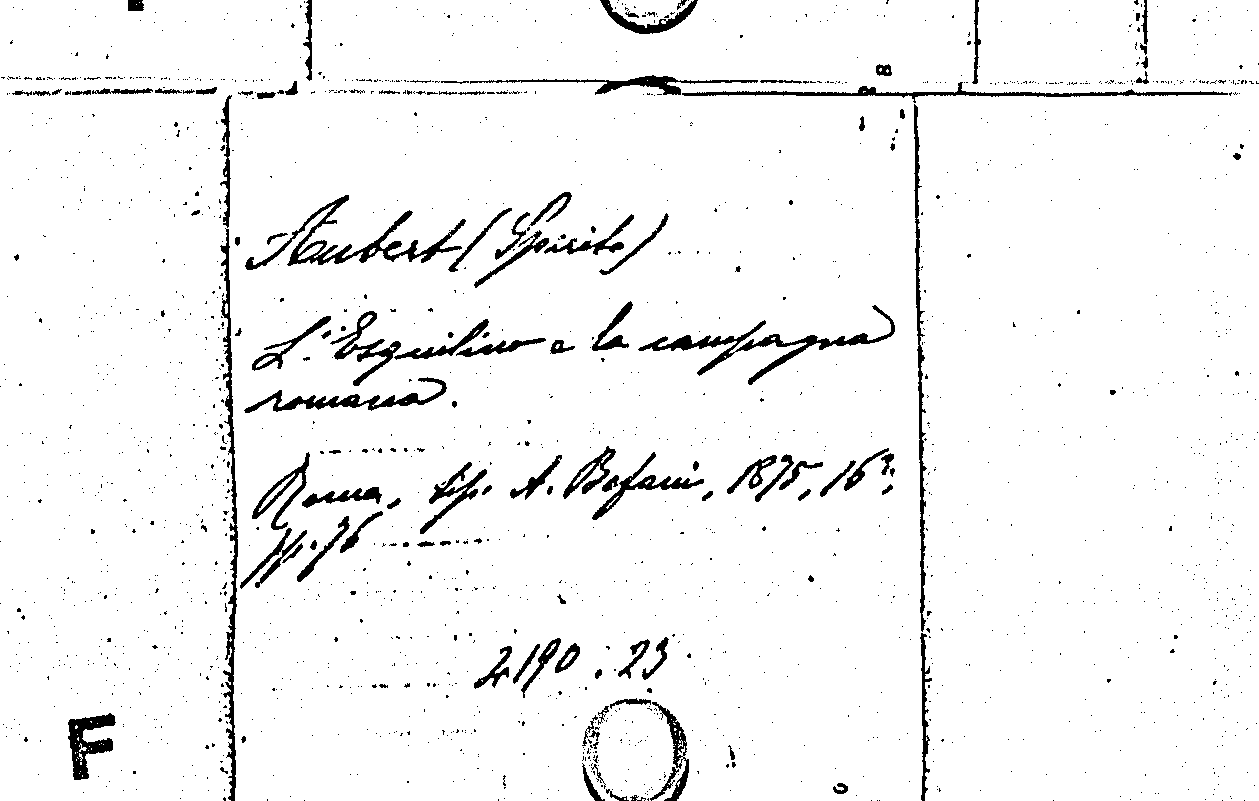 Aubert (Spirito)
L'Esquilino e la campagna
romana.
Roma, tip. A. Befani, 1875, 16º;
pp. 76
2190.23
F